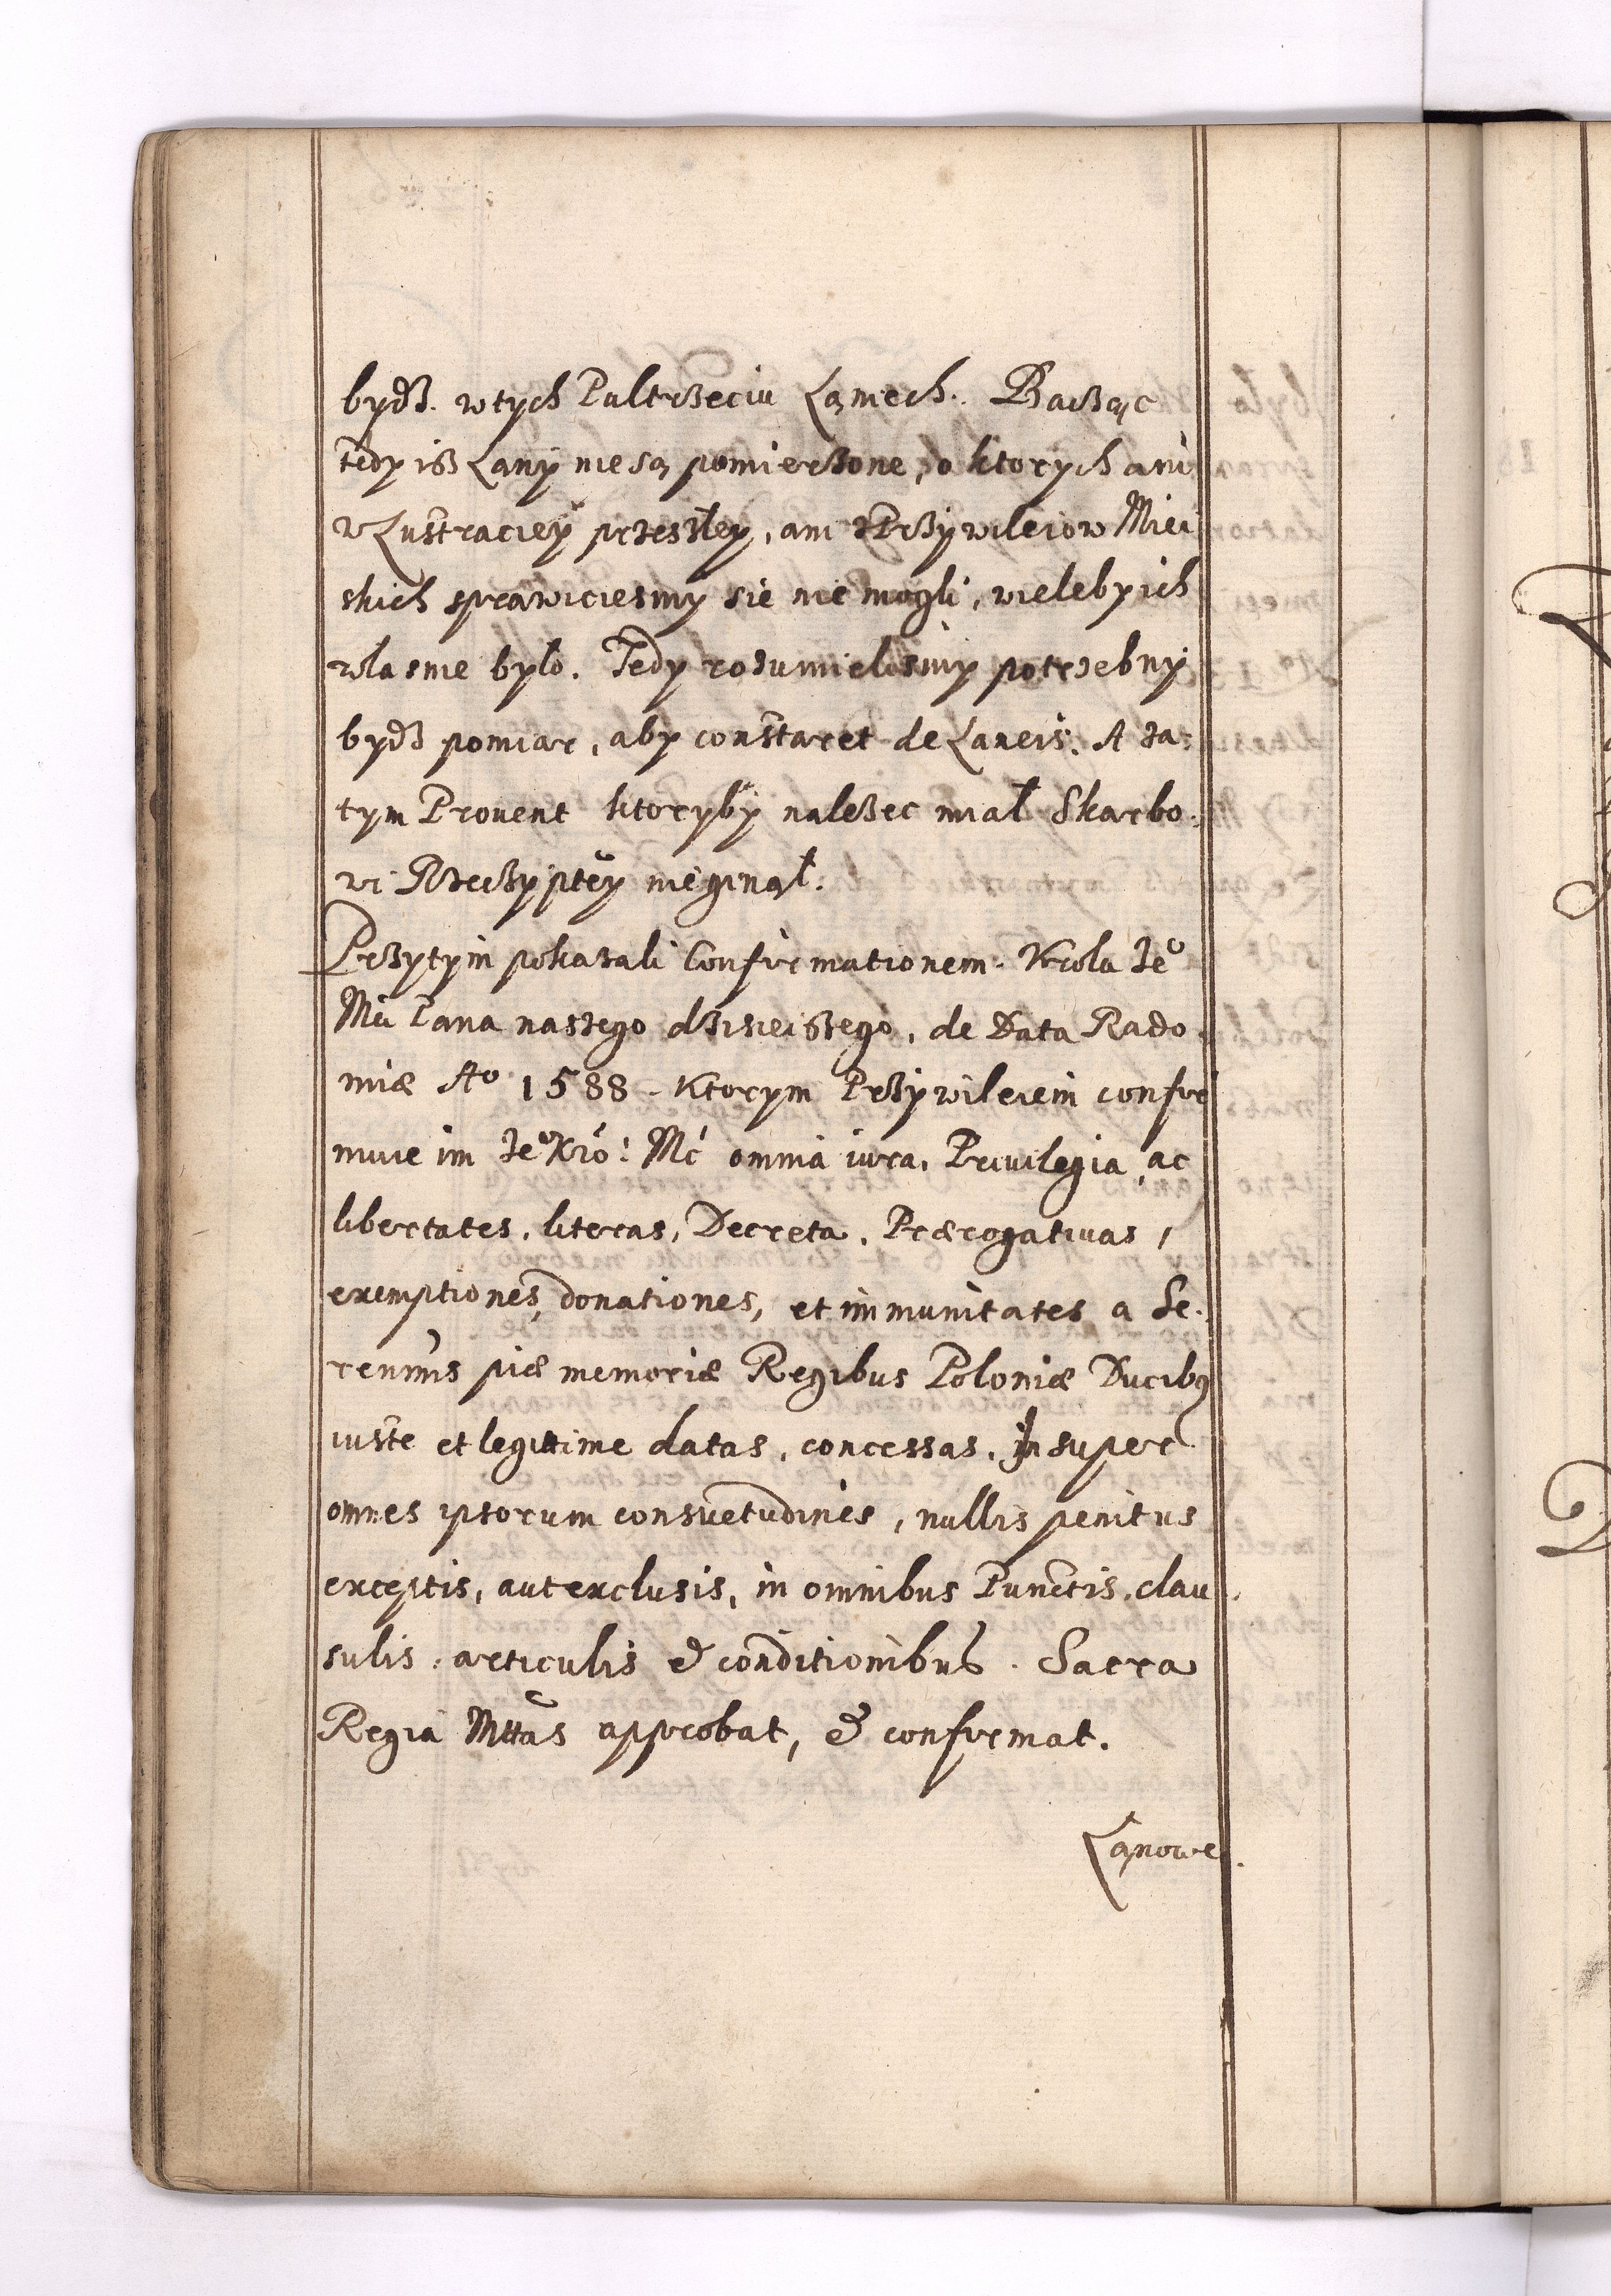 bydź. w tych Pultrzeciu Łaniech. Baczac
tedy iż Łany nie są pomierzone, o ktorych ani
w Lustraciey przeszłey, ani z Przywileiow Miei
skich sprawiciesmy sie nie mogli, wieleby ich
własnie było. Tedy rozumielismy potrzebny
bydź pomiar, aby constaret de Laneis. A za:
tym Prouent ktoryby należec miał Skarbo
wi Rzeczyptey nie ginął.
Przytym pokazali Confirmationem. Krola Jeº
Mci Pana naszego dzisieiszego, de Data Rado
miæ Aº 1588 - Ktorym Przywileiem confir
muie im Jeº Kró: Mć omnia iura, Priuilegia ac
libertates, literas, Decreta, Prærogatiuas,
exemptiones, donationes, et immunitates a Se.
renmis piæ memoriæ Regibus Poloniæ Ducibq
iuste et legittime datas, concessas, Insuper
omnes ipsorum consuetudines, nullis penitus
exceptis, aut exclusis, in omnibus Punctis, clau
sulis, articulis & conditionibus. Sacra
Regia Mttas approbat, & confirmat.
Łanowe